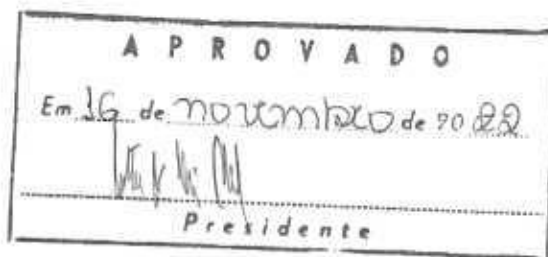 APROVADO
Em 16 de novembro de 2022
Presidente